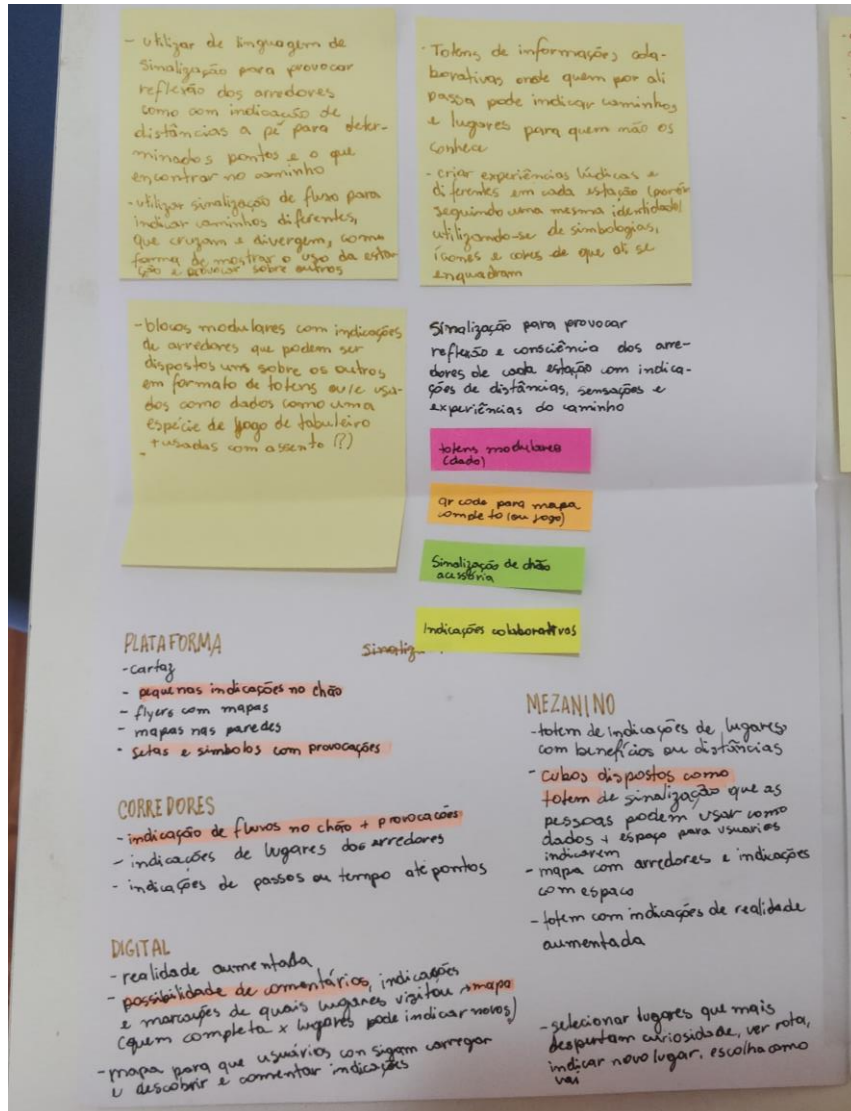 - utilizar de linguagem de
sinalização para provocar
reflexão dos arredores
como com indicação de
distâncias a pé para deter-
minados pontos e o que
encontrar no caminho
- utilizar sinalização de fluxo para
indicar caminhos diferentes,
que cruzam e divergem, como
forma de mostrar o uso da esta-
ção e provocar sobre outros
- Totens de informações cola-
borativas onde quem por ali
passa pode indicar caminhos
e lugares para quem não os
conheça
- criar experiências lúdicas e
diferentes em cada estação (porém
seguindo uma mesma identidade)
utilizando-se de simbologias,
ícones e cores de que ali se
enquadram
- blocos modulares com indicações
de arredores que podem ser
dispostos uns sobre os outros
em formato de totens ou/e usa-
dos como dados como uma
espécie de jogo de tabuleiro
+ usadas com assento (?)
-
Sinalização para provocar
reflexão e consciência dos arre-
dores de cada estação com indica-
ções de distâncias, sensações e
experiências do caminho
totens modulares
(dado)
qr code para mapa
completo (ou jogo)
Sinalização de chão
acessória
Indicações colaborativas
Sinaliz
PLATAFORMA
- cartaz
- pequenas indicações no chão
- flyers com mapas
- mapas nas paredes
- setas e símbolos com provocações
CORREDORES
- indicação de fluxos no chão + provocações
- indicações de lugares dos arredores
- indicações de passos ou tempo até pontos
DIGITAL
- realidade aumentada
- possibilidade de comentários, indicações
e marcações de quais lugares visitou → mapa
(quem completa x lugares pode indicar novos)
- mapa para que usuários consigam carregar
e descobrir e comentar indicações
MEZANINO
- totem de indicações de lugares
com benefícios ou distâncias
- cubos dispostos como
totem de sinalização que as
pessoas podem usar como
dados + espaço para usuários
indicarem
- mapa com arredores e indicações
com espaço
- totem com indicações de realidade
aumentada
- selecionar lugares que mais
despertam curiosidade, ver rota,
indicar novo lugar, escolha como
vai